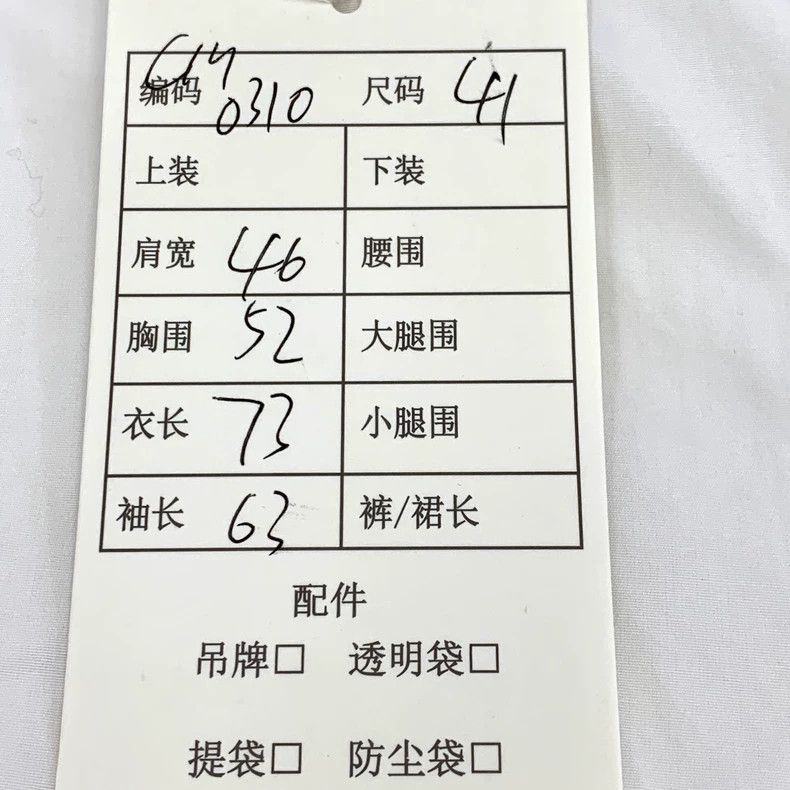 编码 0310 尺码 41
上装 下装
肩宽 46 腰围
胸围 52 大腿围
衣长 73 小腿围
袖长 63 裤/裙长
配件
吊牌□ 透明袋□
提袋□ 防尘袋□